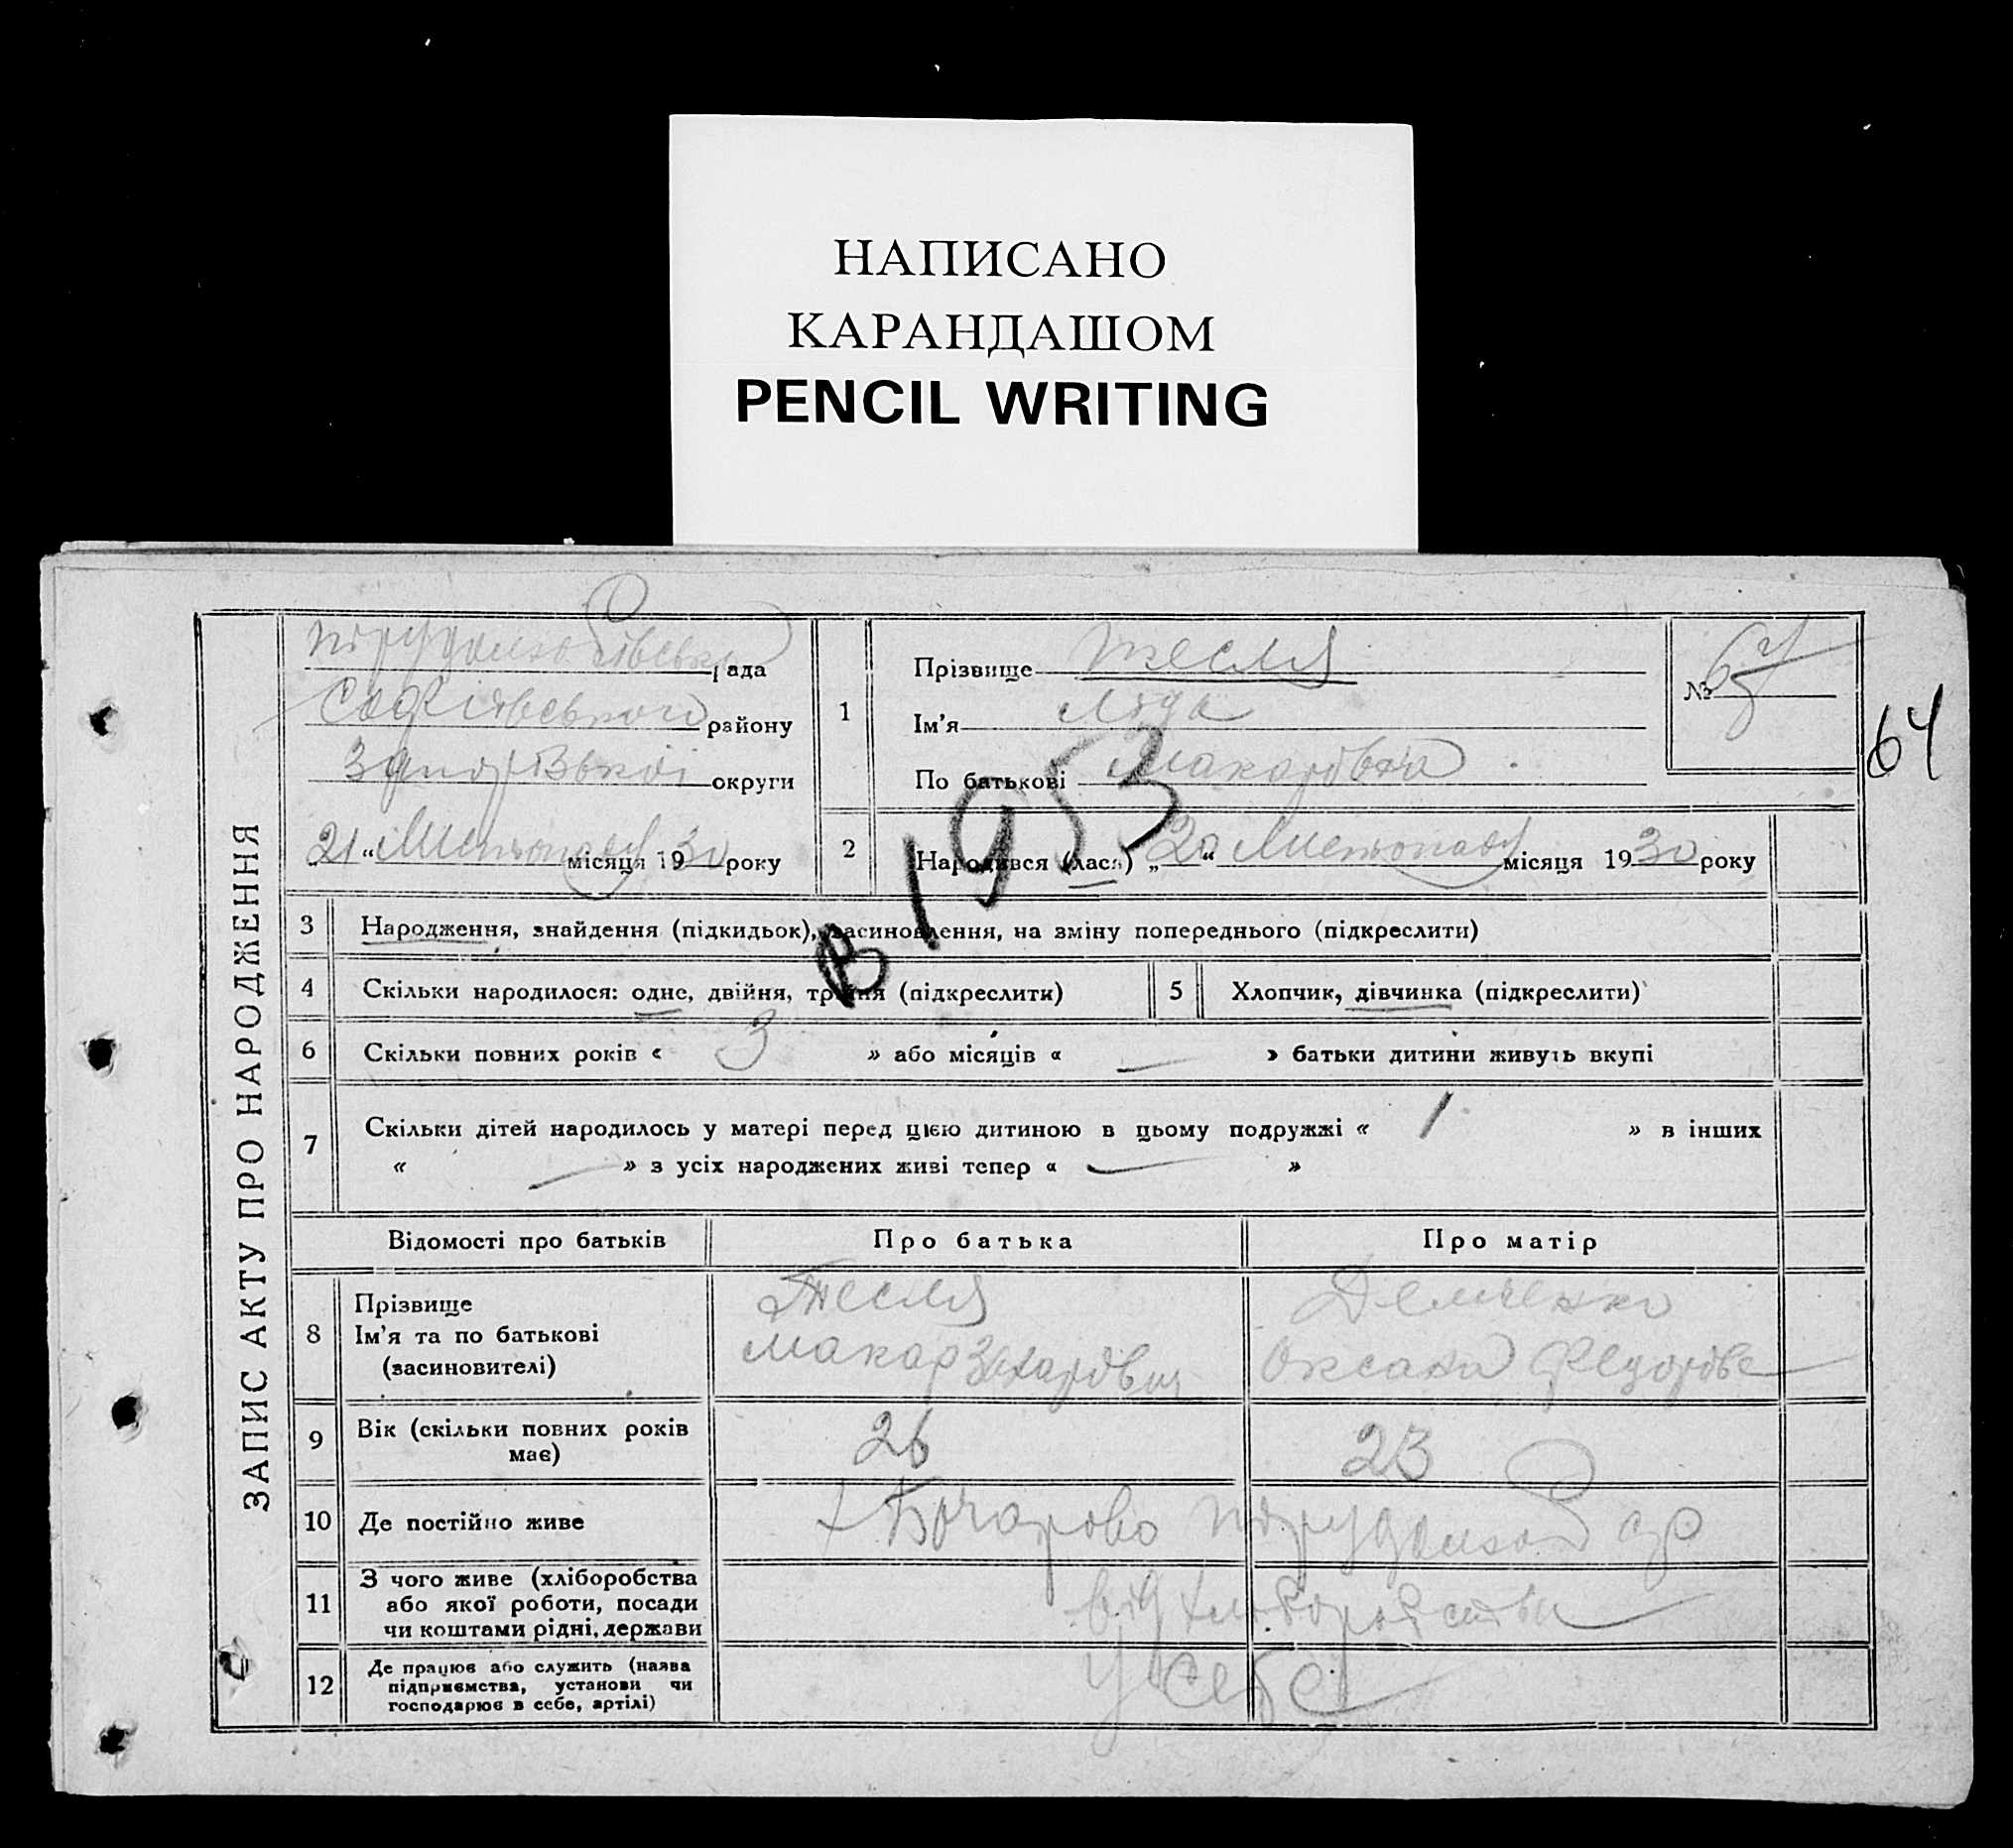 НАПИСАНО
КАРАНДАШОМ
PENCIL WRITING
ЗАПИС АКТУ ПРО НАРОДЖЕННЯ
рада
району
округи
„21“ Листопаду місяця 1930 року
1
Прізвище Тесля
Ім'я Ліда
По батькові Макаровна
№ 67
64
2 Народився (лася) „20“ Листопаду місяця 1930 року
в 1953
3 Народження, знайдення (підкидьок), засиновлення, на зміну попереднього (підкреслити)
4 Скільки народилося: одне, двійня, трійня (підкреслити)
5 Хлопчик, дівчинка (підкреслити)
6 Скільки повних років « 3 » або місяців « — » батьки дитини живуть вкупі
7 Скільки дітей народилось у матері перед цією дитиною в цьому подружжі « 1 » в інших
« — » з усіх народжених живі тепер « — »
Відомості про батьків Про батька Про матір
8 Прізвище
Ім'я та по батькові
(засиновителі)
Тесля
Макар Захарович
Демченко
Оксана Федорівна
9 Вік (скільки повних років
має)
26
23
10 Де постійно живе
х Бочарово
11 З чого живе (хліборобства
або якої роботи, посади
чи коштами рідні, держави
від хліборобства
12 Де працює або служить (наява
підприємства, установи чи
господарює в себе, артілі)
У себе